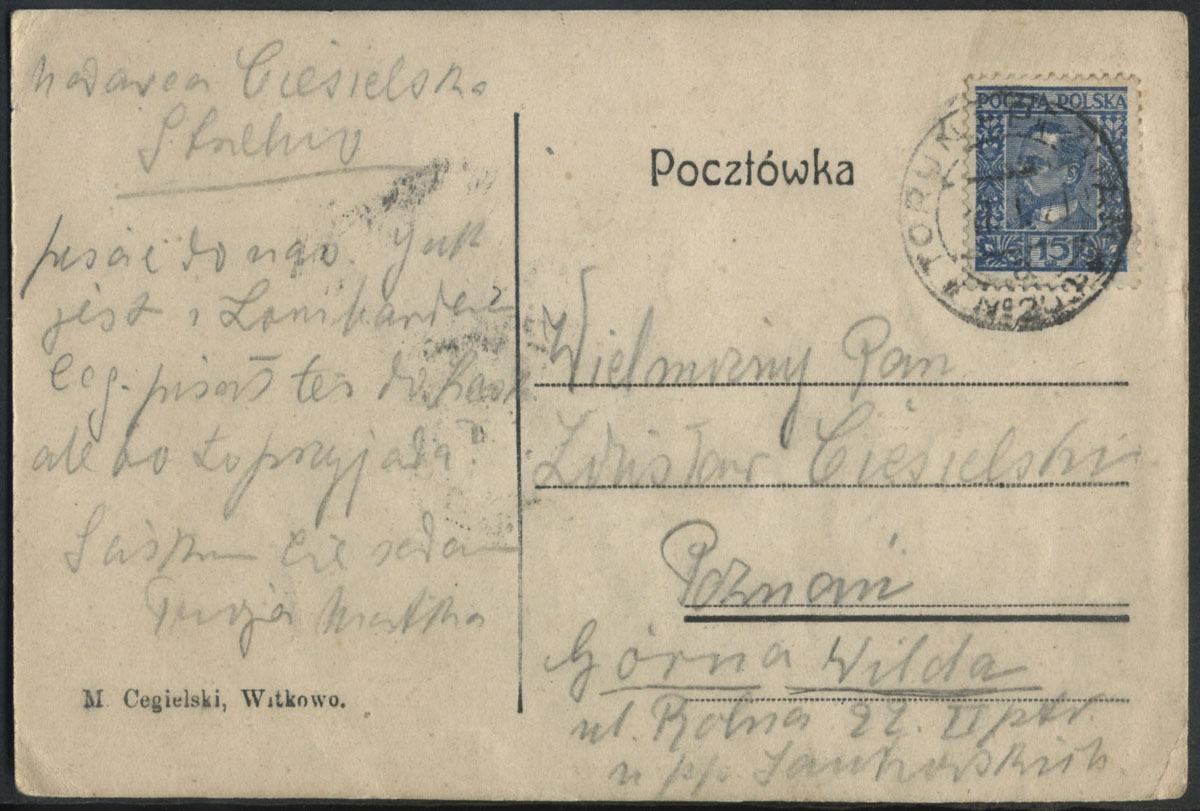 Nadawca Ciesielska
Strzelno
piszcie do nas. Jak
jest i
Ceg. pisał też do
albo to przyjadą.
Ściskam Cię
Twoja Matka
M. Cegielski, Witkowo.
Pocztówka
POCZTA POLSKA
15
TORUŃ
Wielmożny Pan
Zdzisław Ciesielski
Poznań
Górna Wilda
ul. Rolna 22. II ptr.
u pp Jankowskich.